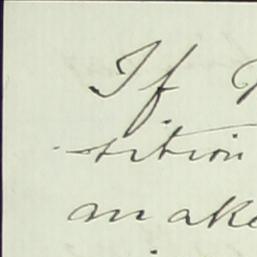 If
sition
an ake